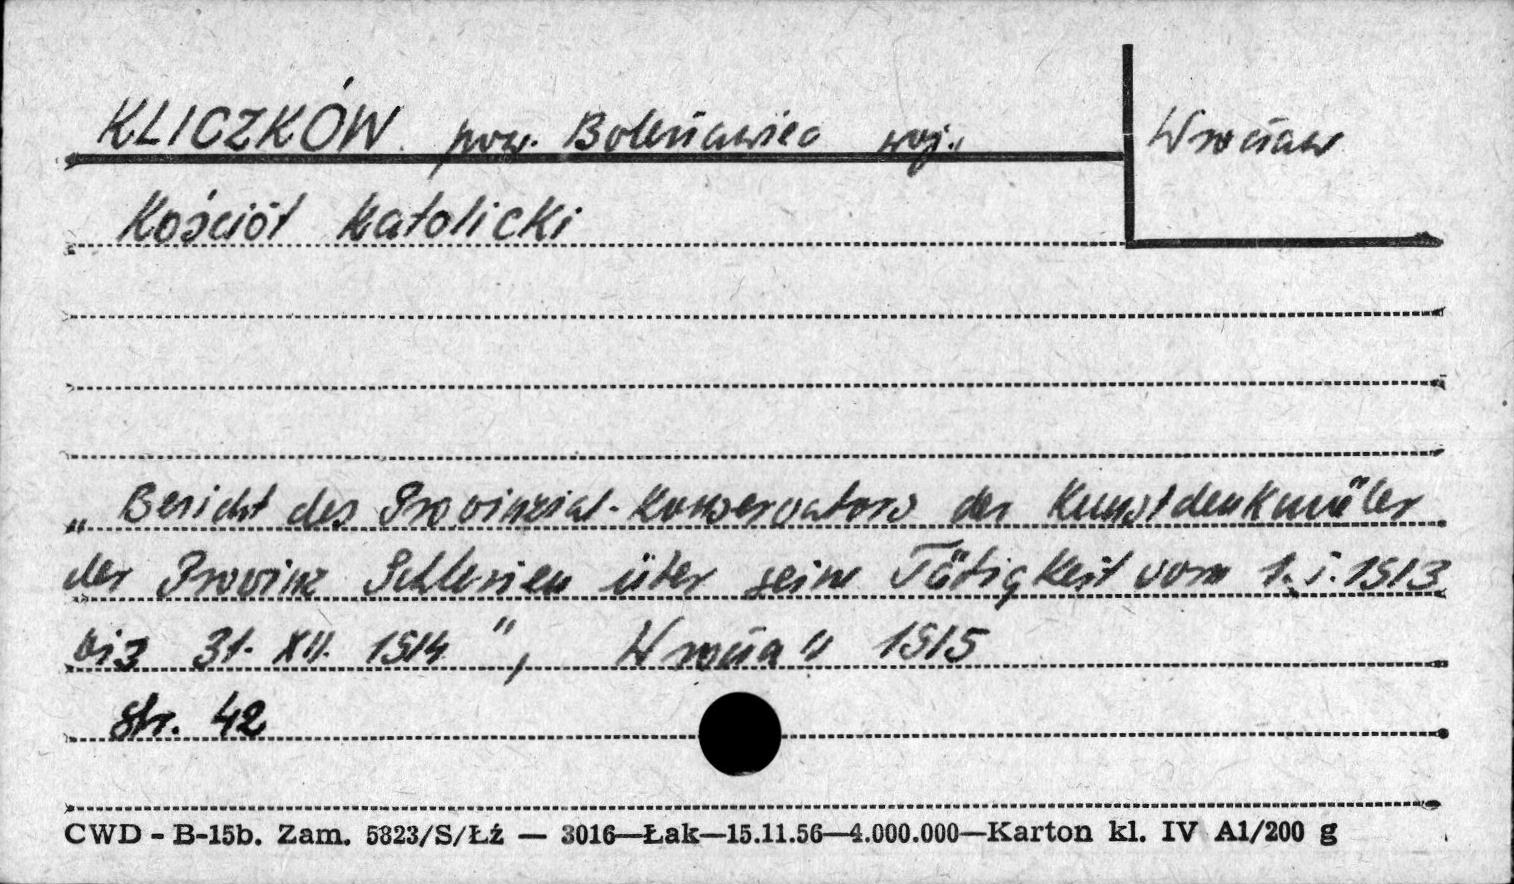 KLICZKÓW pow. Bolesławiec woj. Wrocław
Kościół Katolicki
„Bericht des Provinzial-Konservators der Kunstdenkmäler
der Provinz Schlesien über seine Tätigkeit vom 1. I. 1913
bis 31. XII. 1914", Wrocław 1915
str. 42
CWD - B-15b. Zam. 5823/S/Łź — 3016—Łak—15.11.56—4.000.000—Karton kl. IV A1/200 g